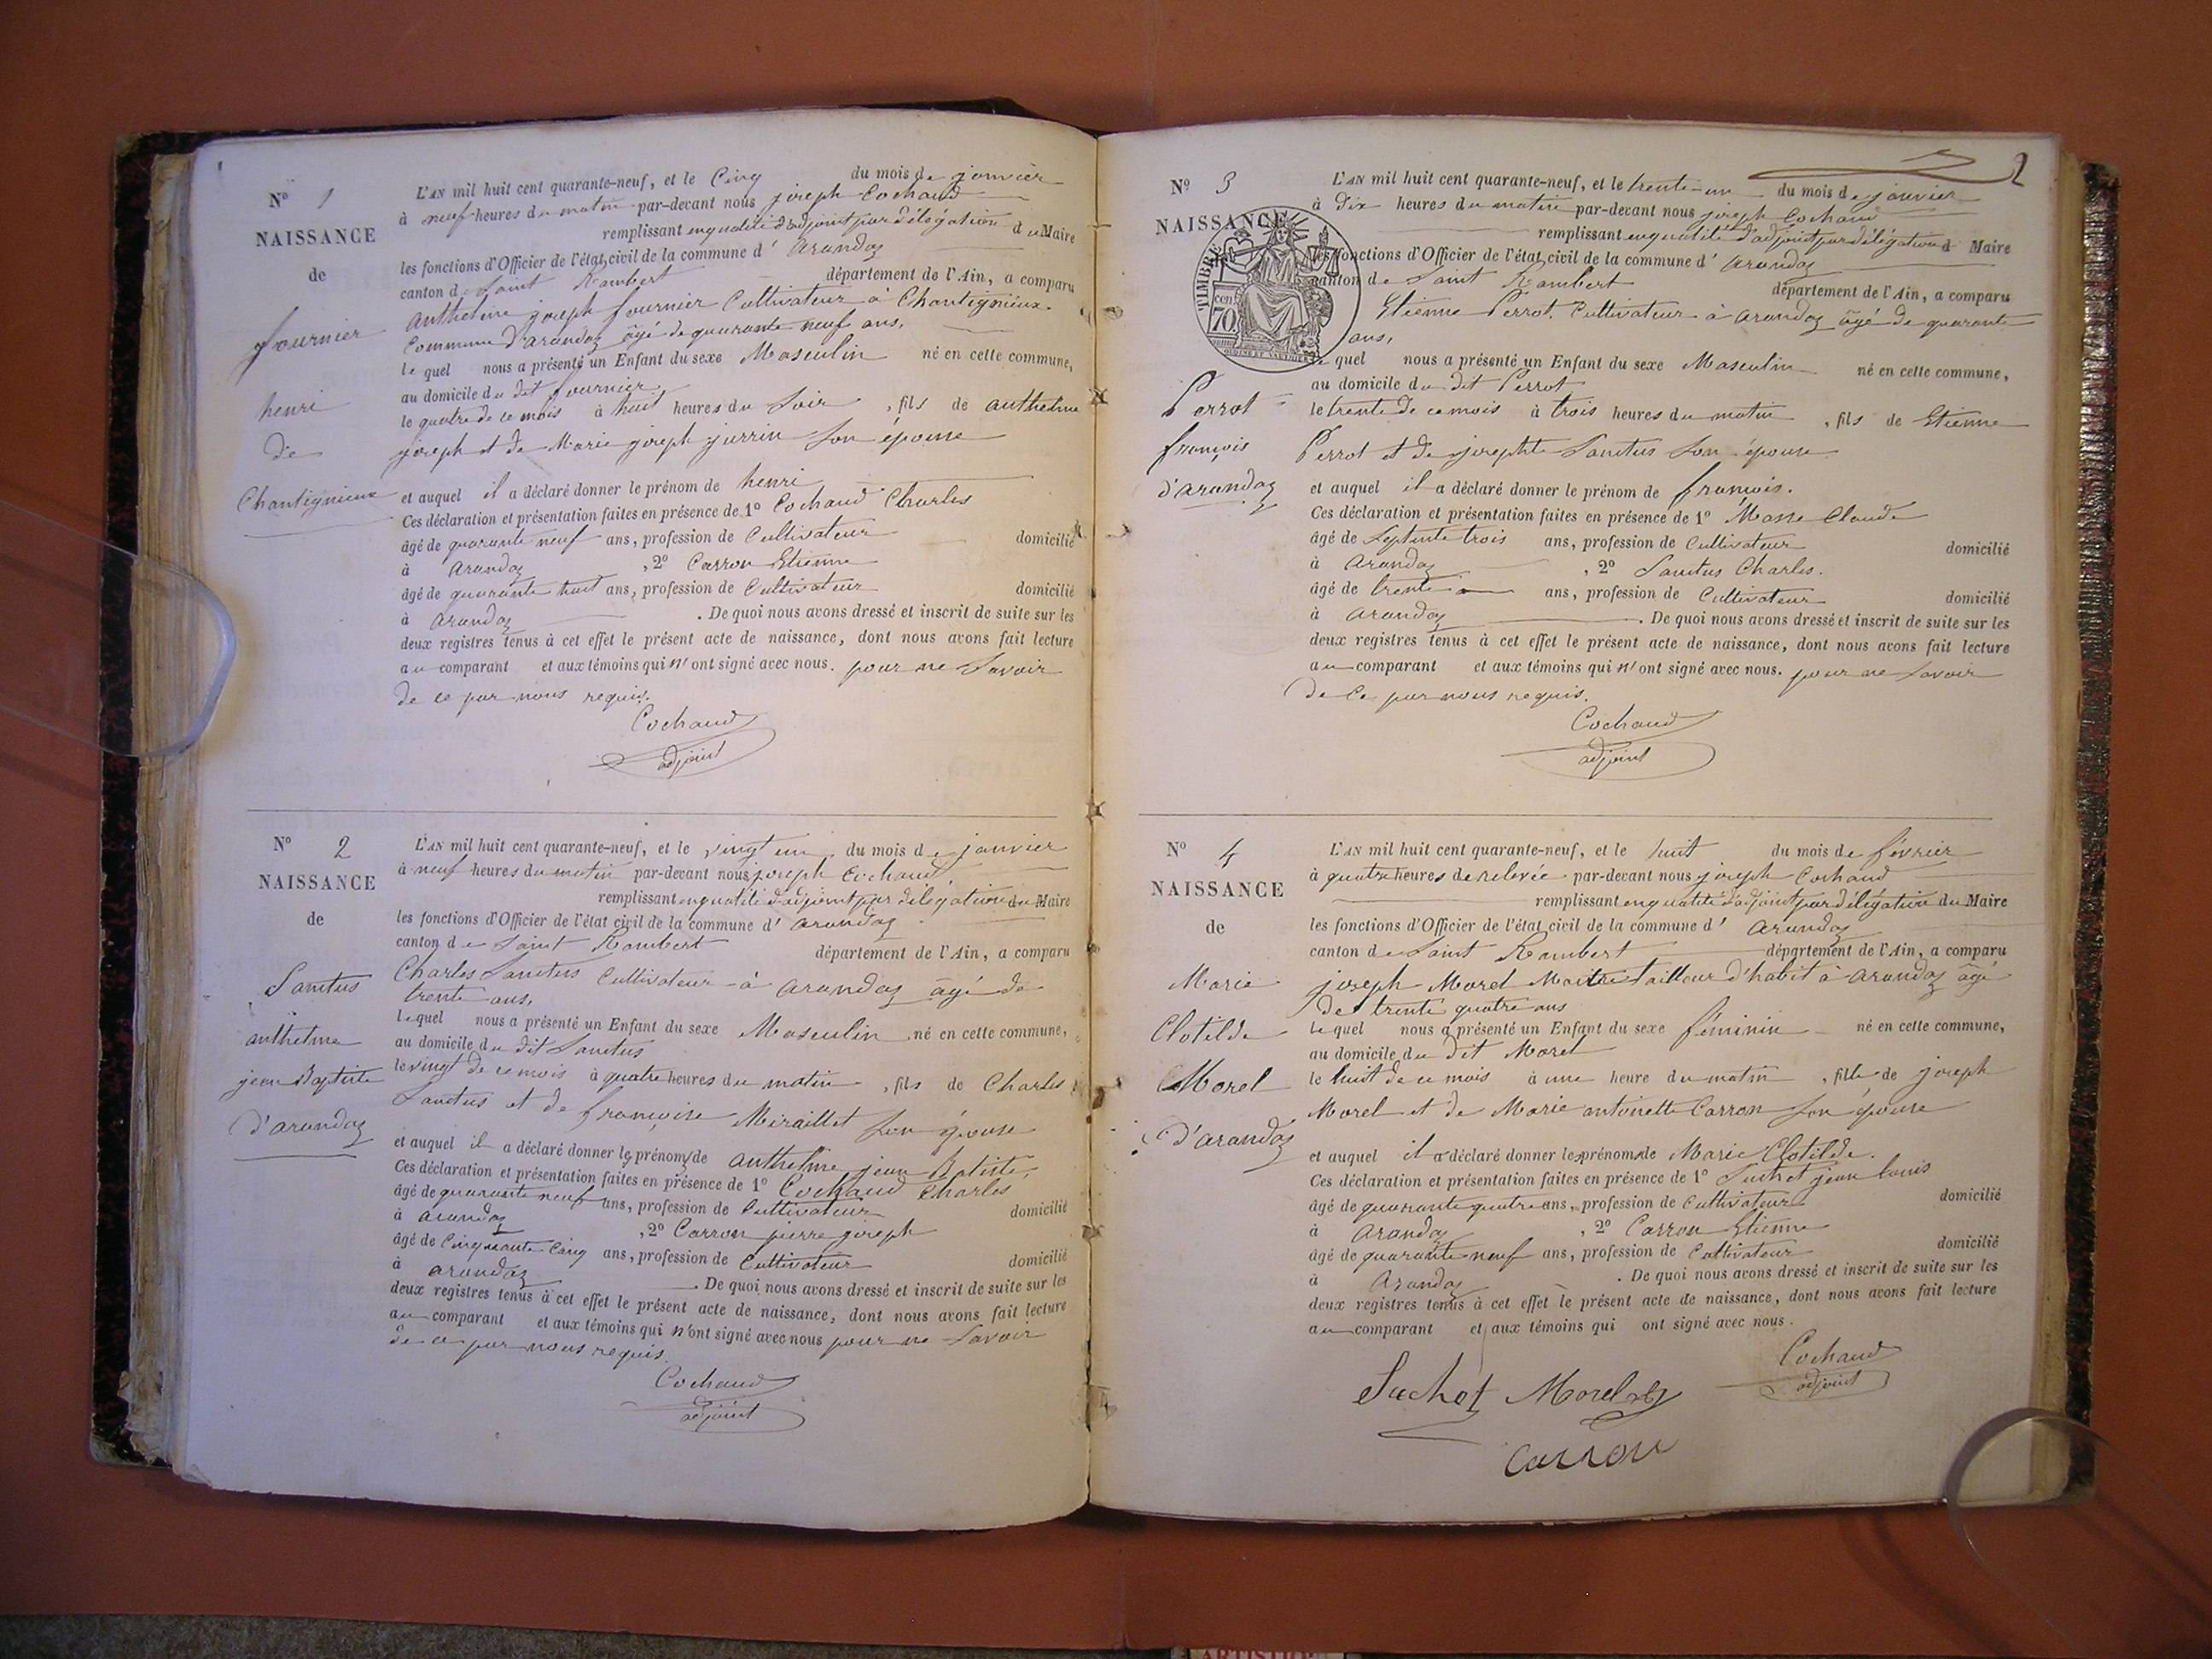 N° 1
NAISSANCE
de
fournier
henri
de
Chantignieux
L'AN mil huit cent quarante-neuf, et le Cinq du mois de janvier
à neuf heures du matin par-devant nous joseph Cochaud
remplissant en qualité d'adjoint par délégation du Maire
les fonctions d'Officier de l'état civil de la commune d' arandaz
canton de Saint Rambert département de l'Ain, a comparu
anthelme joseph fournier Cultivateur à Chantignieux
Commune d'arandaz âgé de quarante neuf ans,
lequel nous a présenté un Enfant du sexe Masculin né en cette commune,
au domicile du dit fournier
le quatre de ce mois à huit heures du Soir, fils de anthelme
joseph et de Marie joseph jurrin Son épouse
et auquel il a déclaré donner le prénom de henri
Ces déclaration et présentation faites en présence de 1° Cochaud Charles
âgé de quarante neuf ans, profession de Cultivateur domicilié
à arandaz, 2° Carron Etienne
âgé de quarante huit ans, profession de Cultivateur domicilié
à arandaz. De quoi nous avons dressé et inscrit de suite sur les
deux registres tenus à cet effet le présent acte de naissance, dont nous avons fait lecture
au comparant et aux témoins qui n'ont signé avec nous. pour ne Savoir
de ce par nous requis.
Cochaud
adjoint
N° 2
NAISSANCE
de
Sanctus
anthelme
jean Baptiste
d'arandaz
L'AN mil huit cent quarante-neuf, et le vingt un du mois de janvier
à neuf heures du matin par-devant nous joseph Cochaud
remplissant en qualité d'adjoint par délégation du Maire
les fonctions d'Officier de l'état civil de la commune d' arandaz
canton de Saint Rambert département de l'Ain, a comparu
Charles Sanctus Cultivateur à arandaz âgé de
trente ans,
lequel nous a présenté un Enfant du sexe Masculin né en cette commune,
au domicile du dit Sanctus
le vingt de ce mois à quatre heures du matin, fils de Charles
Sanctus et de françoise Miraillet Son épouse
et auquel il a déclaré donner les prénoms de anthelme jean Batiste
Ces déclaration et présentation faites en présence de 1° Cochaud Charles
âgé de quarante neuf ans, profession de Cultivateur domicilié
à arandaz, 2° Carron pierre joseph
âgé de Cinquante Cinq ans, profession de Cultivateur domicilié
à arandaz. De quoi nous avons dressé et inscrit de suite sur les
deux registres tenus à cet effet le présent acte de naissance, dont nous avons fait lecture
au comparant et aux témoins qui n'ont signé avec nous pour ne Savoir
de ce par nous requis.
Cochaud
adjoint
2
N° 3
NAISSANCE
TIMBRE
cen. 70
Perrot
françois
d'arandaz
L'AN mil huit cent quarante-neuf, et le trente-un du mois de janvier
à Dix heures du matin par-devant nous joseph Cochaud
remplissant en qualité d'adjoint par délégation d Maire
les fonctions d'Officier de l'état civil de la commune d' arandaz
canton de Saint Rambert département de l'Ain, a comparu
Etienne Perrot, Cultivateur à arandaz âgé de quarante
ans,
le quel nous a présenté un Enfant du sexe Masculin né en cette commune,
au domicile du dit Perrot
le trente de ce mois à trois heures du matin, fils de Etienne
Perrot et de josephte Sanctus Son épouse
et auquel il a déclaré donner le prénom de françois.
Ces déclaration et présentation faites en présence de 1° Masse Claude
âgé de Septante trois ans, profession de Cultivateur domicilié
à arandaz, 2° Sanctus Charles.
âgé de trente ans, profession de Cultivateur domicilié
à arandaz. De quoi nous avons dressé et inscrit de suite sur les
deux registres tenus à cet effet le présent acte de naissance, dont nous avons fait lecture
au comparant et aux témoins qui n'ont signé avec nous. pour ne Savoir
de Ce par nous requis.
Cochaud
adjoint
N° 4
NAISSANCE
de
Marie
Clotilde
Morel
d'arandaz
L'AN mil huit cent quarante-neuf, et le huit du mois de février
à quatre heures de relevée par-devant nous joseph Cochaud
remplissant en qualité d'adjoint par délégation du Maire
les fonctions d'Officier de l'état civil de la commune d' arandaz
canton de Saint Rambert département de l'Ain, a comparu
joseph Morel Maitre tailleur d'habit à arandaz âgé
de trente quatre ans
lequel nous a présenté un Enfant du sexe féminin né en cette commune,
au domicile du dit Morel
le huit de ce mois à une heure du matin, fille de joseph
Morel et de Marie antoinette Carron Son épouse
et auquel il a déclaré donner les prénoms de Marie Clotilde.
Ces déclaration et présentation faites en présence de 1° Suchet jean louis
âgé de quarante quatre ans, profession de Cultivateur domicilié
à arandaz, 2° Carron Etienne
âgé de quarante neuf ans, profession de Cultivateur domicilié
à arandaz. De quoi nous avons dressé et inscrit de suite sur les
deux registres tenus à cet effet le présent acte de naissance, dont nous avons fait lecture
au comparant et aux témoins qui ont signé avec nous.
Cochaud
adjoint
Suchet Morel
Carron
ARTISTIC